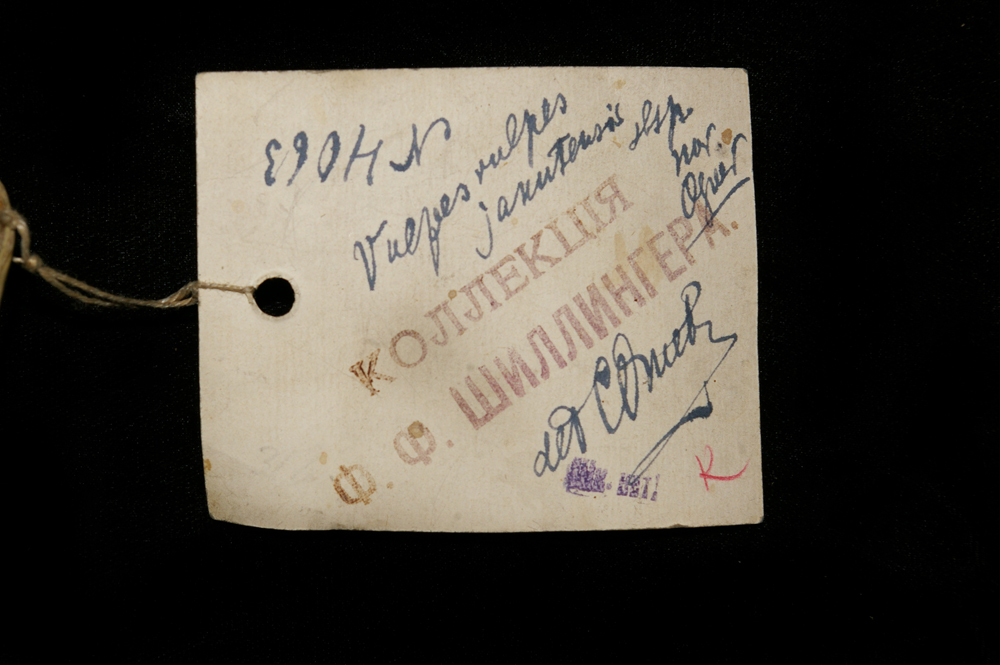 N 4063
Vulpes vulpes
jakutensis sbsp.
nov.
Ognev
КОЛЛЕКЦІЯ
Ф. Ф. ШИЛЛИНГЕРА.
det S Ognev
K